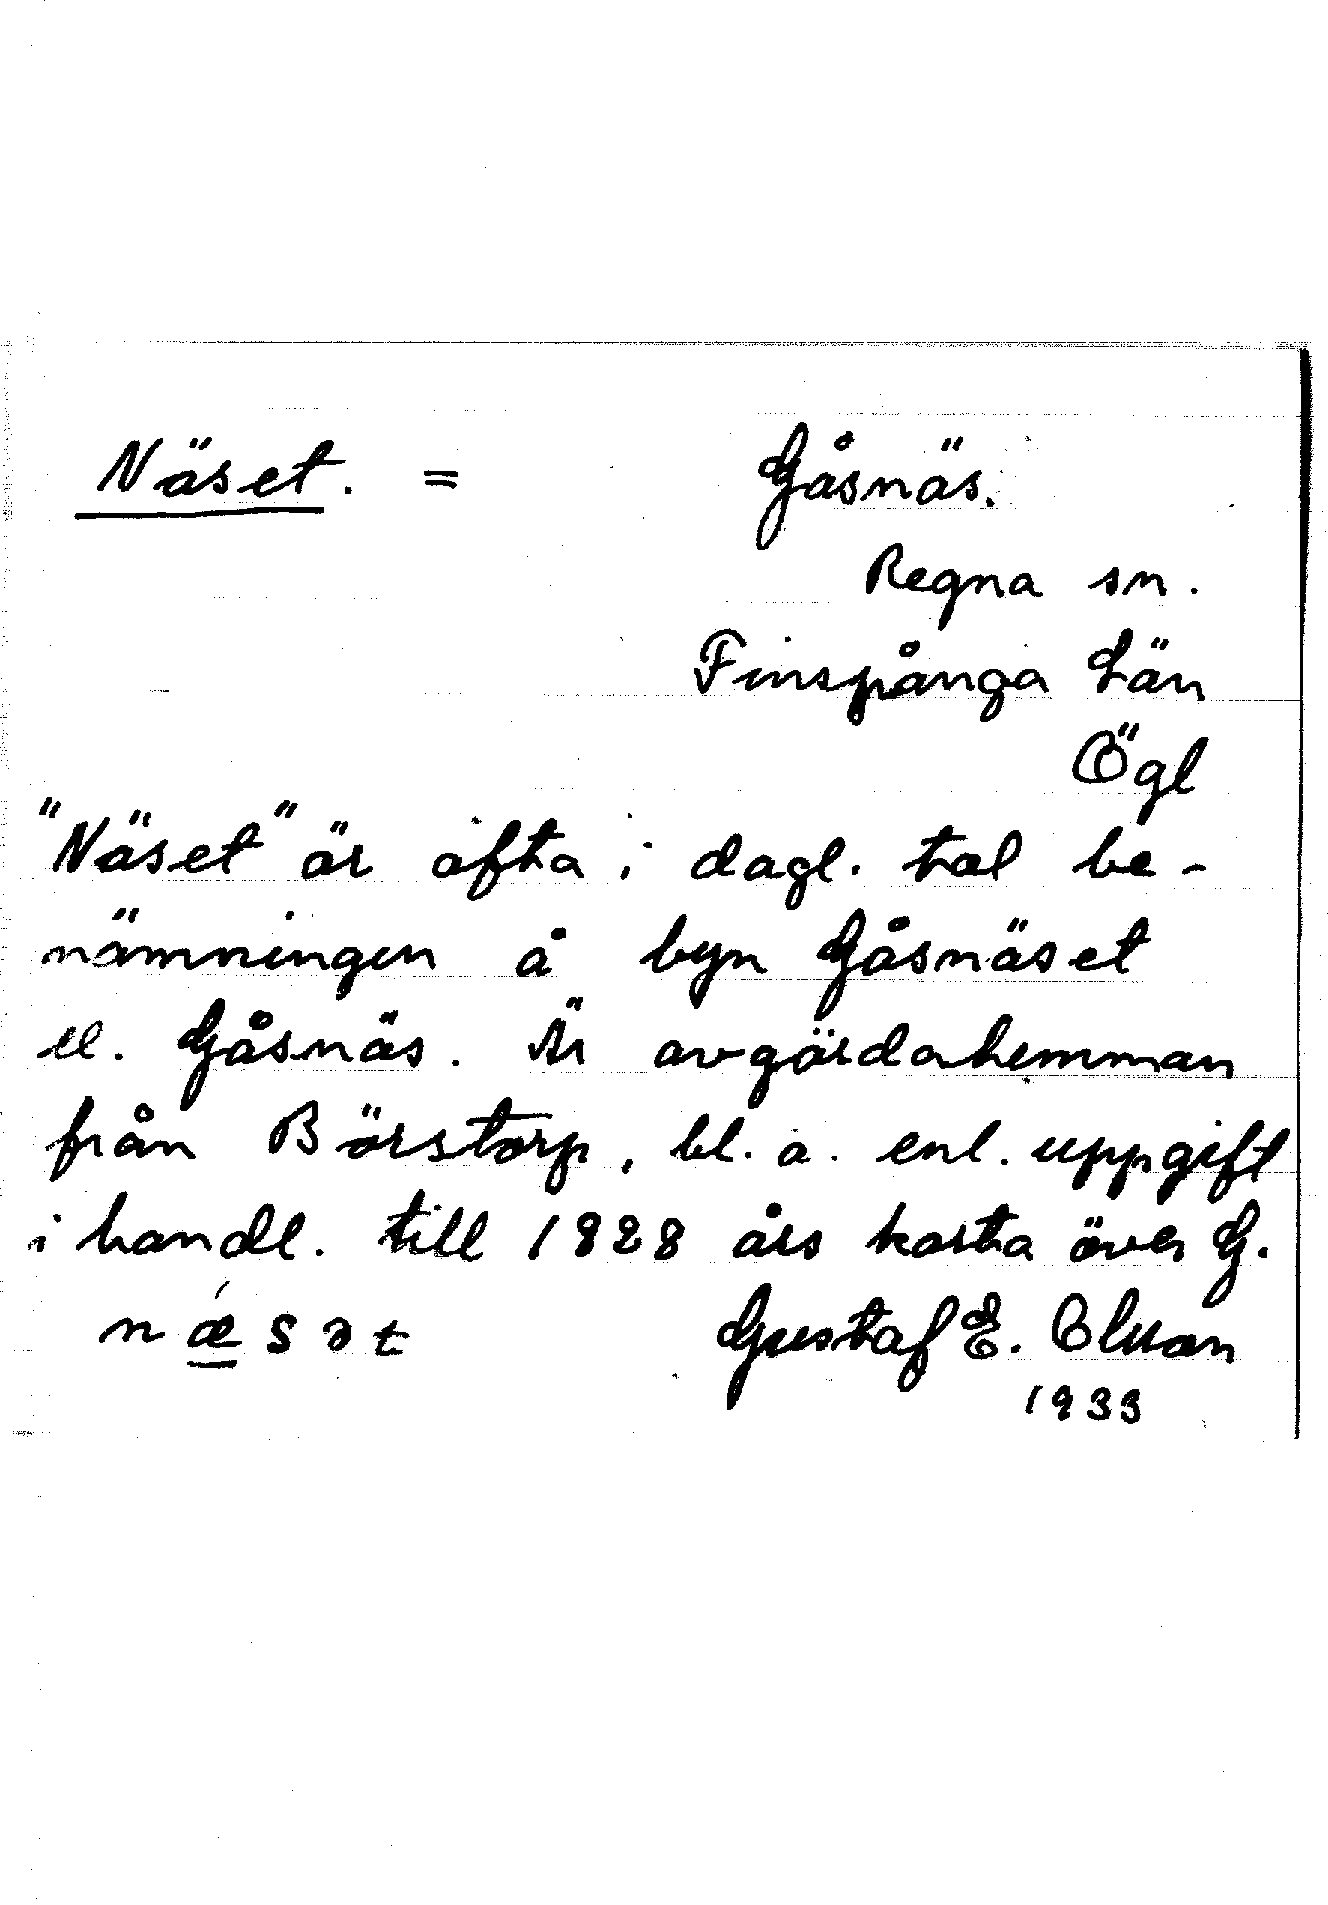 Näset. = Gåsnäs.
Regna sn.
Finspånga Län
Ögl
"Näset" är ofta i dagl. tal be-
nämningen å byn Gåsnäset
el. Gåsnäs. Är avgärdahemman
från Börstorp, bl. a. enl. uppgift
i handl. till 1828 års karta över G.
nǽsət Gustaf E. Elvson
1933